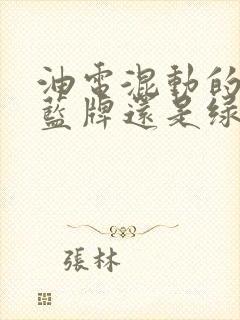 油電混動的
藍牌還是綠
張林